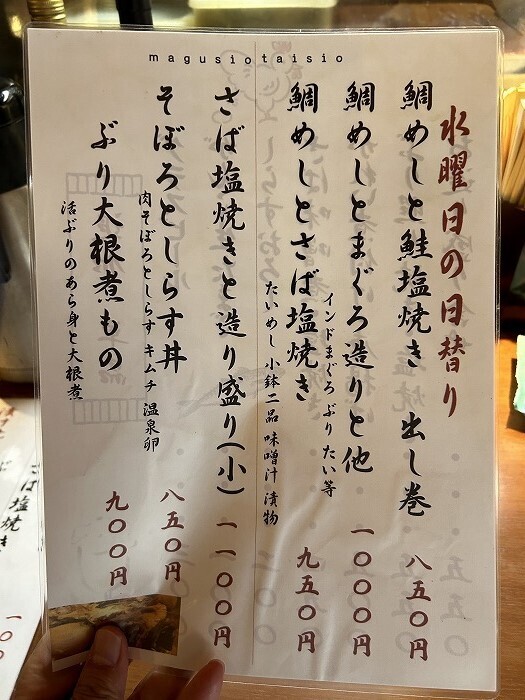 magusiotaisio
水曜日の日替り
鯛めしと鮭塩焼き 出し巻 八五〇円
鯛めしとまぐろ造りと他 一〇〇〇円
インドまぐろ ぶり たい等
鯛めしとさば塩焼き 九五〇円
たいめし 小鉢二品 味噌汁 漬物
さば塩焼きと造り盛り(小) 一一〇〇円
そぼろとしらす丼 八五〇円
肉そぼろとしらす キムチ 温泉卵
ぶり大根煮もの 九〇〇円
活ぶりのあら身と大根煮
さば塩焼き
一〇〇